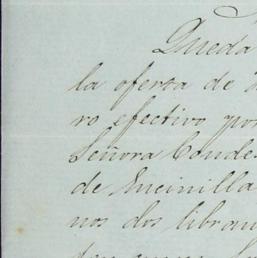 Queda
la oferta de
ro efectivo por
Señora Conde
de Encinilla
nos dos libran